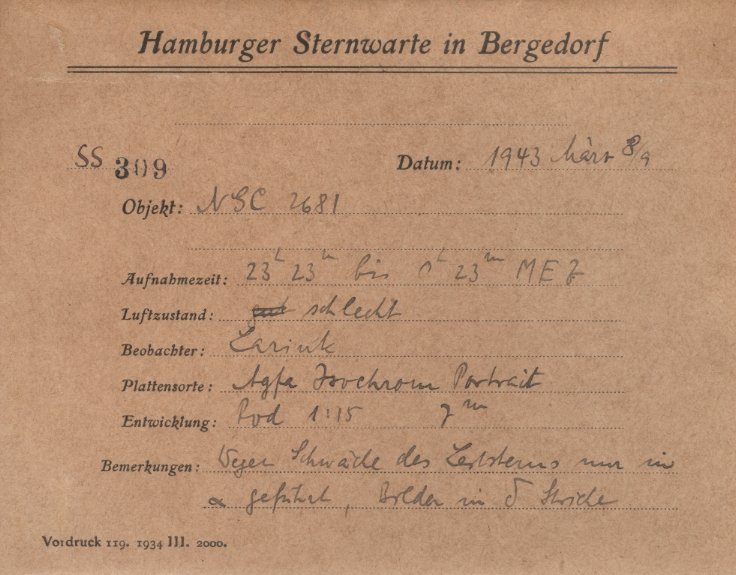 Hamburger Sternwarte in Bergedorf
SS 309 Datum: 1943 März 8/9
Objekt: NGC 2681
Aufnahmezeit: 23h 23m bis 0h 23m MEZ
Luftzustand: gut schlecht
Beobachter: Larink
Plattensorte: Agfa Isochrom Portrait
Entwicklung: Rod 1:15 7m
Bemerkungen: Wegen Schwäche des Leitsterns nur in
α geführt, Bilder in δ Striche
Vordruck 119. 1934 III. 2000.